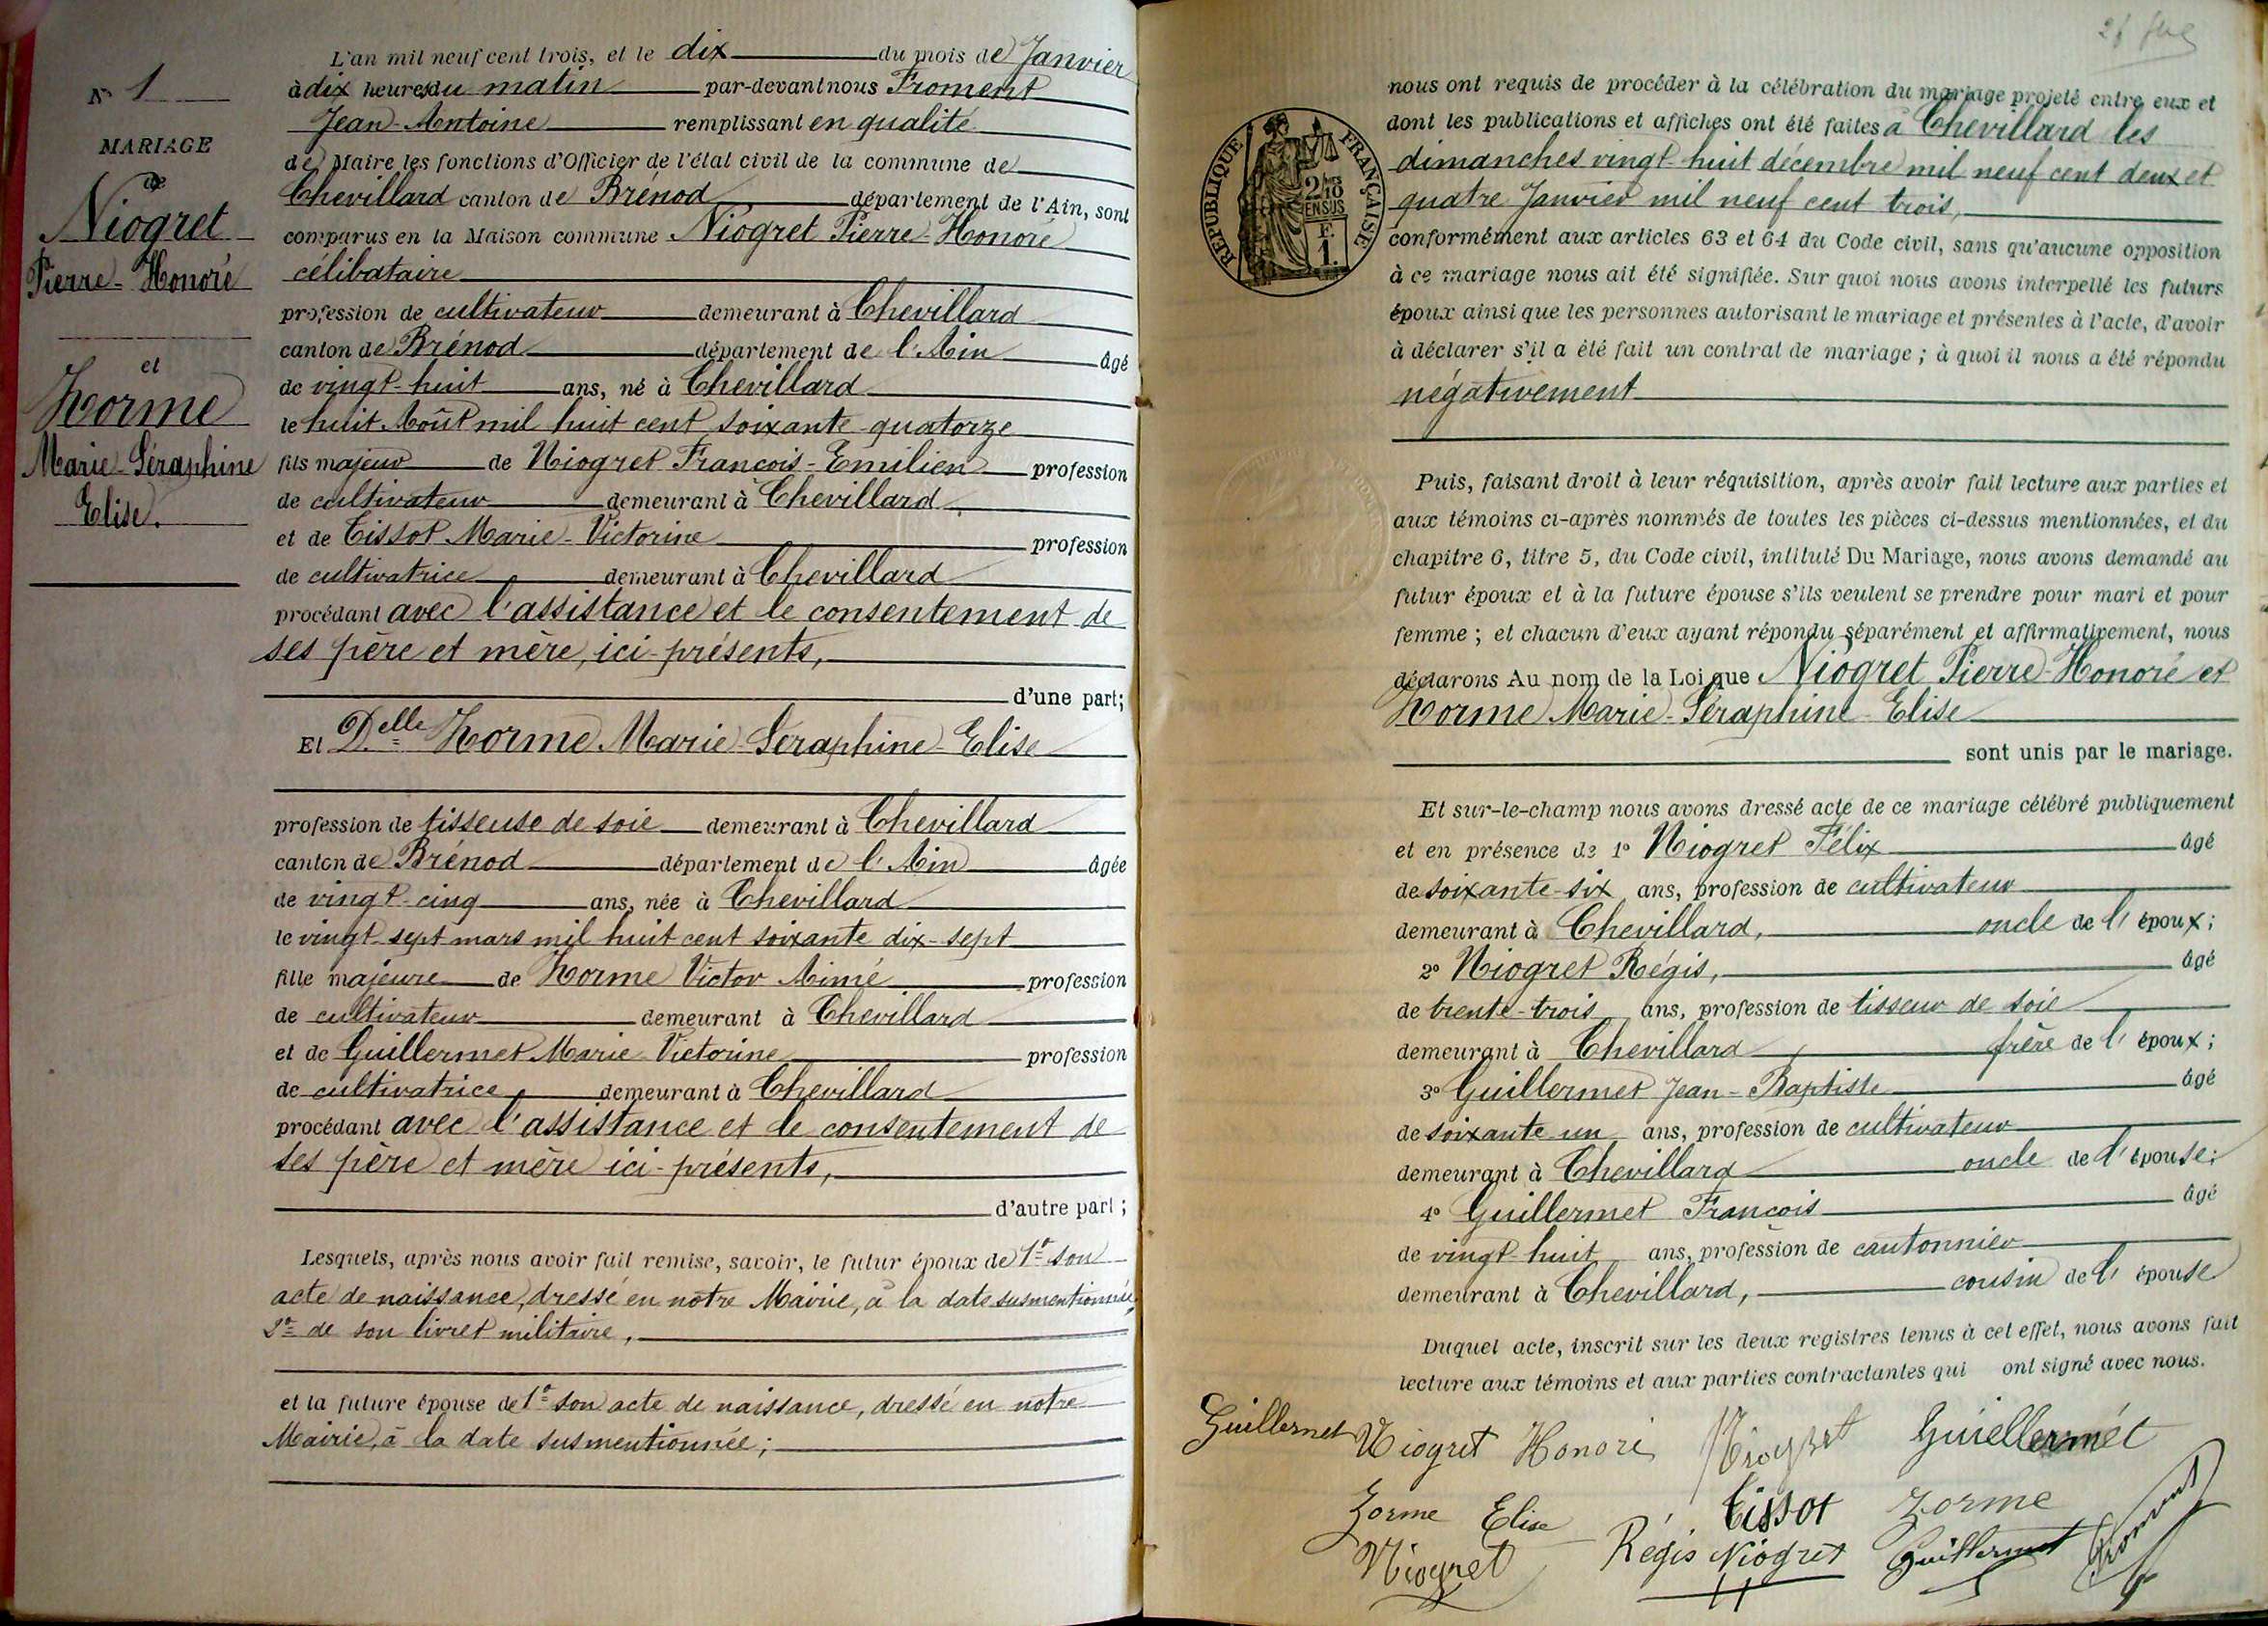 N° 1
MARIAGE
de
Niogret
Pierre-Honoré
et
Zorme
Marie-Séraphine
Elise.
L'an mil neuf cent trois, et le dix du mois de Janvier
à dix heures du matin par-devant nous Froment
Jean-Antoine remplissant en qualité
de Maire les fonctions d'Officier de l'état civil de la commune de
Chevillard canton de Brénod département de l'Ain, sont
comparus en la Maison commune Niogret Pierre-Honoré
célibataire
profession de cultivateur demeurant à Chevillard
canton de Brénod département de l'Ain âgé
de vingt-huit ans, né à Chevillard
le huit Août mil huit cent soixante-quatorze
fils majeur de Niogret François-Emilien profession
de cultivateur demeurant à Chevillard,
et de Tissot Marie-Victorine profession
de cultivatrice demeurant à Chevillard
procédant avec l'assistance et le consentement de
ses père et mère, ici-présents,
d'une part;
Et Delle Zorme Marie-Séraphine-Elise
profession de tisseuse de soie demeurant à Chevillard
canton de Brénod département de l'Ain âgée
de vingt-cinq ans, née à Chevillard
le vingt-sept mars mil huit cent soixante dix-sept
fille majeure de Zorme Victor Aimé profession
de cultivateur demeurant à Chevillard
et de Guillermet Marie-Victorine profession
de cultivatrice demeurant à Chevillard
procédant avec l'assistance et le consentement de
ses père et mère ici-présents,
d'autre part;
Lesquels, après nous avoir fait remise, savoir, le futur époux de 1° son
acte de naissance, dressé en notre Mairie, à la date susmentionnée,
2° de son livret militaire,
et la future épouse de 1° son acte de naissance, dressé en notre
Mairie, à la date susmentionnée;
RÉPUBLIQUE FRANÇAISE
2/10
EN SUS
F.
1.
nous ont requis de procéder à la célébration du mariage projeté entre eux et
dont les publications et affiches ont été faites à Chevillard les
dimanches vingt-huit décembre mil neuf cent deux et
quatre Janvier mil neuf cent trois,
conformément aux articles 63 et 64 du Code civil, sans qu'aucune opposition
à ce mariage nous ait été signifiée. Sur quoi nous avons interpellé les futurs
époux ainsi que les personnes autorisant le mariage et présentes à l'acte, d'avoir
à déclarer s'il a été fait un contrat de mariage; à quoi il nous a été répondu
négativement
Puis, faisant droit à leur réquisition, après avoir fait lecture aux parties et
aux témoins ci-après nommés de toutes les pièces ci-dessus mentionnées, et du
chapitre 6, titre 5, du Code civil, intitulé Du Mariage, nous avons demandé au
futur époux et à la future épouse s'ils veulent se prendre pour mari et pour
femme; et chacun d'eux ayant répondu séparément et affirmativement, nous
déclarons Au nom de la Loi que Niogret Pierre-Honoré et
Zorme Marie-Séraphine-Elise
sont unis par le mariage.
Et sur-le-champ nous avons dressé acte de ce mariage célébré publiquement
et en présence de 1° Niogret Félix âgé
de soixante-six ans, profession de cultivateur
demeurant à Chevillard, oncle de l'époux;
2° Niogret Régis, âgé
de trente-trois ans, profession de tisseur de soie
demeurant à Chevillard, frère de l'époux;
3° Guillermet Jean-Baptiste âgé
de soixante un ans, profession de cultivateur
demeurant à Chevillard oncle de l'épouse;
4° Guillermet François âgé
de vingt-huit ans, profession de cantonnier
demeurant à Chevillard, cousin de l'épouse
Duquel acte, inscrit sur les deux registres tenus à cet effet, nous avons fait
lecture aux témoins et aux parties contractantes qui ont signé avec nous.
Guillermet Niogret Honoré Niogret Guillermét
Zorme Elise Tissot Zorme
Niogret Régis Niogret Guillermet Froment